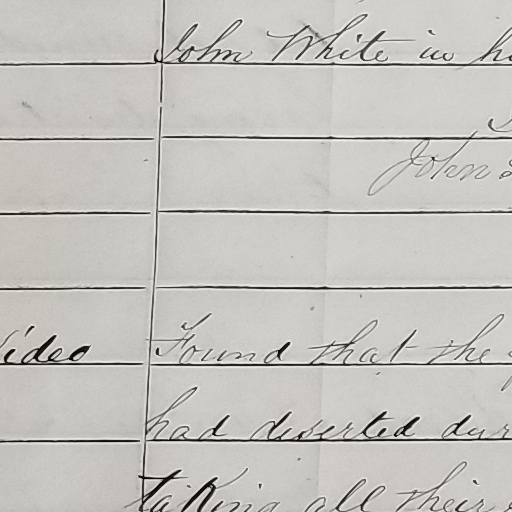 John White in
John
ideo Found that the
had deserted
taking all their